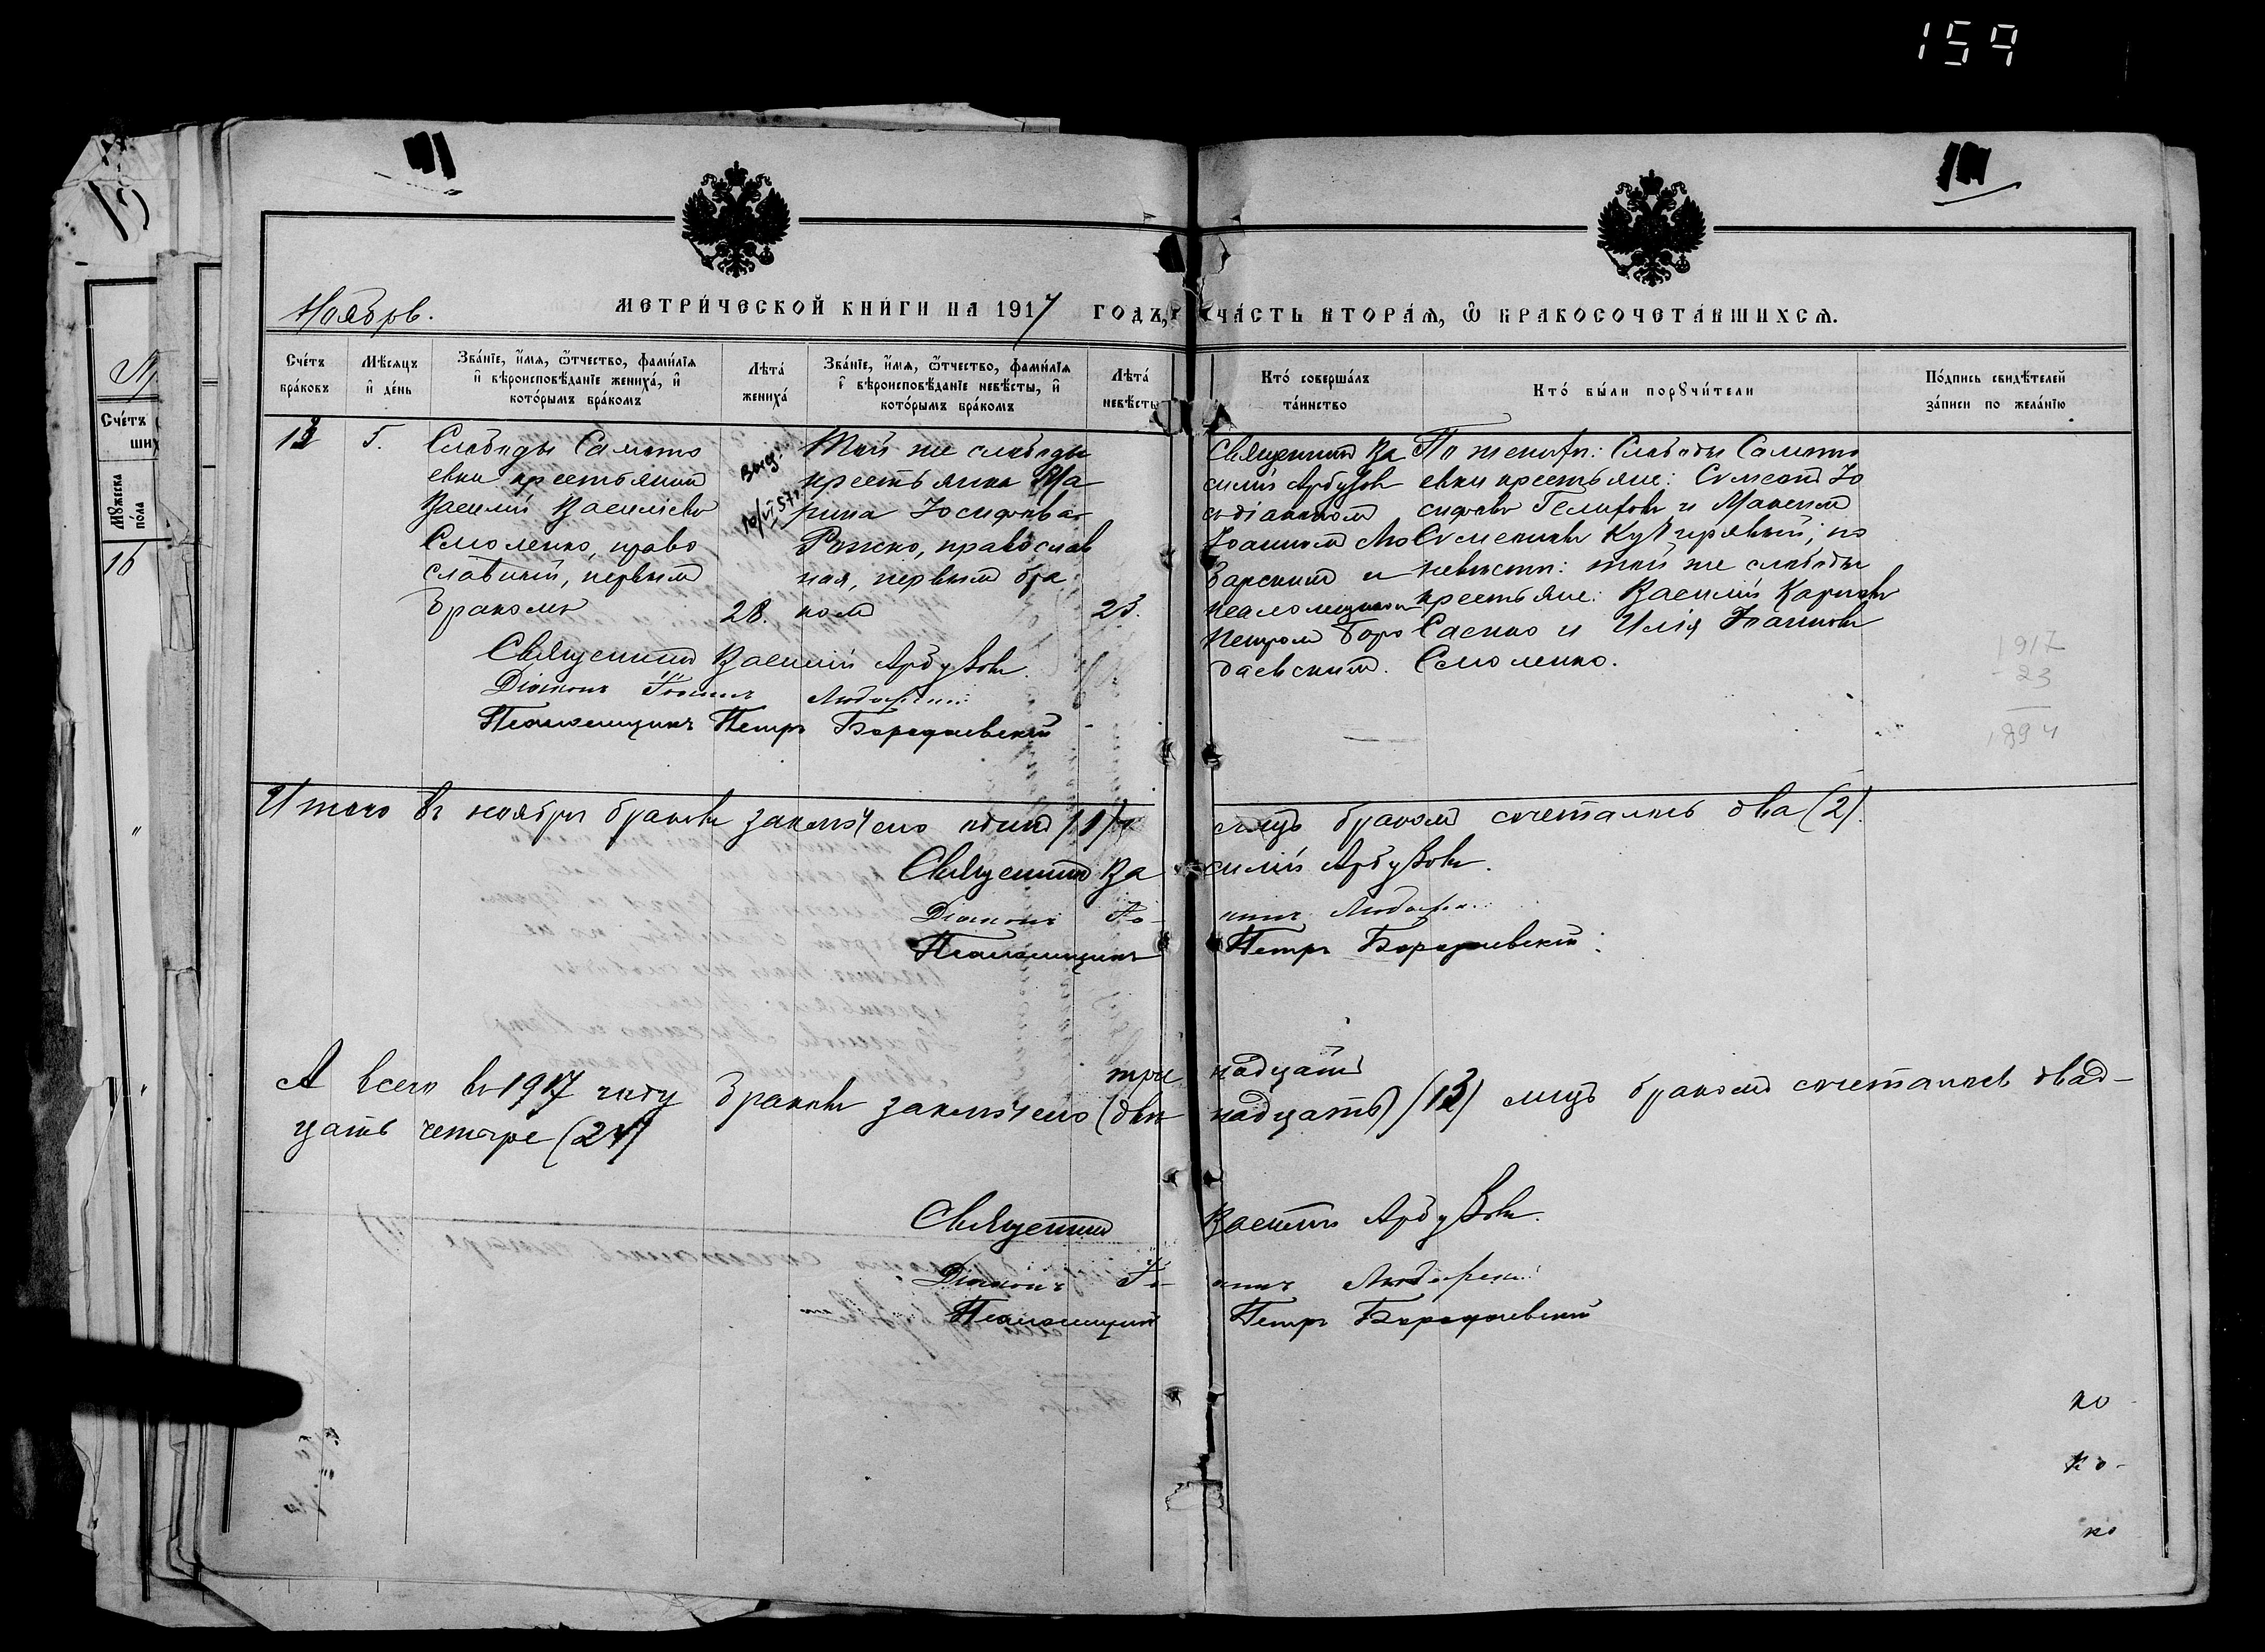 159
Ноябрь.
МЕТРИ́ЧЕСКОЙ КНИ́ГИ НА 1917 ГОДЪ, ЧА́СТЬ ВТОРА́Ѧ, Ѡ҆ БРАКОСОЧЕТА́ВШИХСѦ.
Сче́тъ бра́ковъ
Мѣ́сѧцъ и҆ де́нь
Зва́нїе, и҆́мѧ, ѻ҆́тчество, фами́лїѧ и҆ вѣроисповѣ́данїе жениха́, и҆ кото́рымъ бра́комъ
Лѣта̀ жениха́
Зва́нїе, и҆́мѧ, ѻ҆́тчество, фами́лїѧ и҆ вѣроисповѣ́данїе невѣ́сты, и҆ кото́рымъ бра́комъ
Лѣта̀ невѣ́сты
Кто̀ соверша́лъ та́инство
Кто̀ бы́ли порꙋчи́тели
По́дпись свидѣ́телей за́писи по жела́нїю
13
5.
Слободы Самото
евки крестьянинъ
Василій Васильевъ
Смоленко, право
славный, первымъ
бракомъ
28.
Той же слободы
крестьянка Ма
рина Іосифова
Рожко, православ
ная, первымъ бра
комъ
23.
Священникъ Ва
силій Арбузовъ
съ діакономъ
Іоанномъ Лю
барскимъ и
псаломщикомъ
Петромъ Боро
даевскимъ.
По женихѣ: Слободы Самото
евки крестьяне: Сѵмеонъ Іо
сифовъ и Максимъ
Сѵмеоновъ Кучерявый; по
невѣстѣ: той же слободы
крестьяне: Василій Карповъ
Саенко и Илія Іоанновъ
Смоленко.
Священникъ Василій Арбузовъ.
Діаконъ Іоаннъ Любарскій
Псаломщикъ Петръ Бородаевскій
1917
23
1894
Итого въ ноябрѣ браковъ заключено одинъ (1) лицъ бракомъ сочеталось два (2).
Священникъ Василій Арбузовъ.
Діаконъ Іоаннъ Любарскій
Псаломщикъ Петръ Бородаевскій
три надцать
А всего въ 1917 году браковъ заключено (две надцать) (13) лицъ бракомъ сочеталось двад-
цать четыре (24)
Священникъ Василій Арбузовъ.
Діаконъ Іоаннъ Любарскій
Псаломщикъ Петръ Бородаевскій
Сче́тъ
Мꙋ́жеска по́ла
16
ко
ко-
ко